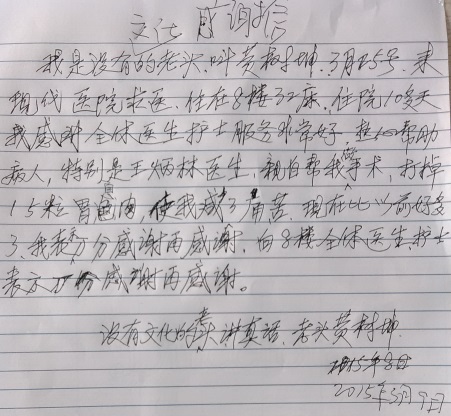 文化 感谢信
我是没有的老头,叫黄材坤,3月25号,来
现代医院求医,住在8楼32床,住院10多天
我感谢全体医生护士服务非常好 热心帮助
病人,特别是王炳林医生,亲自帮我做手术,打掉
15粒胃息肉,使我减了痛苦,现在比以前好多
了,我表万分感谢再感谢,向8楼全体医生护士
表示万分感谢再感谢。
没有文化的老头讲真话,老头黄材坤
2015年3月9日